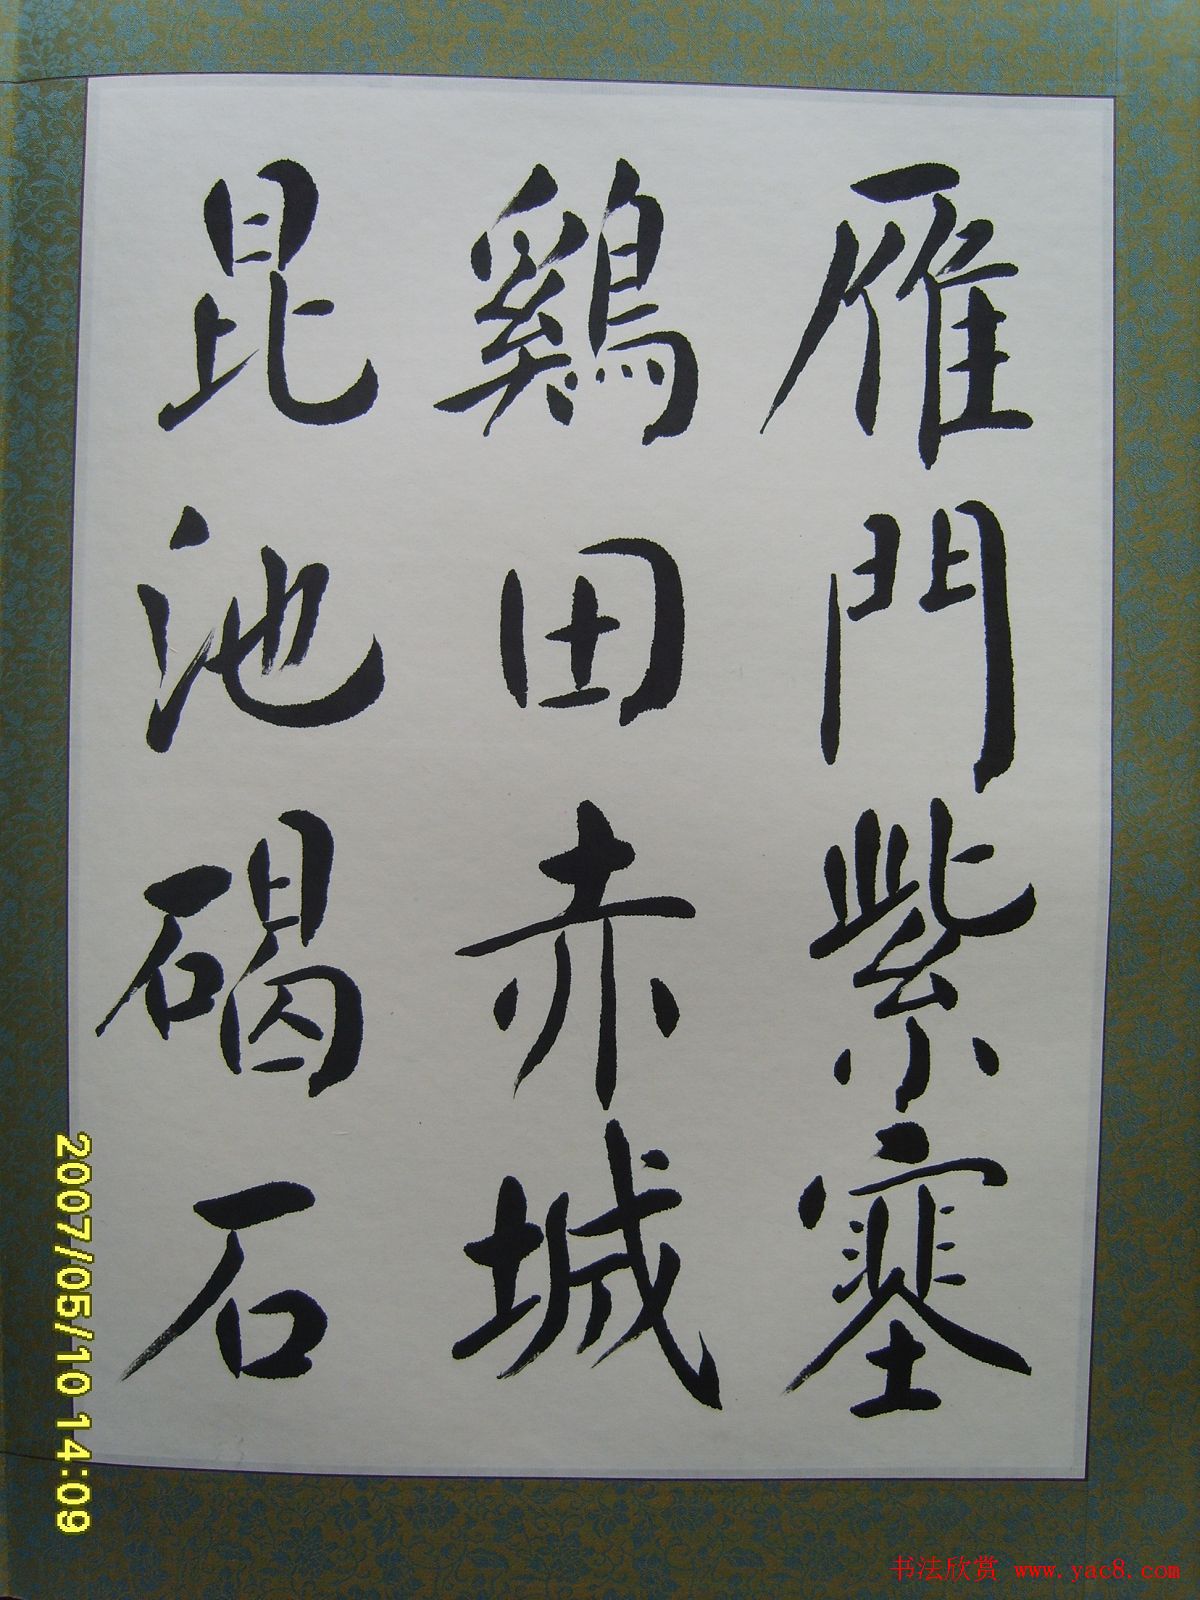 雁門紫塞
鷄田赤城
昆池碣石
2007/05/10 14:09
书法欣赏 www.yac8.com